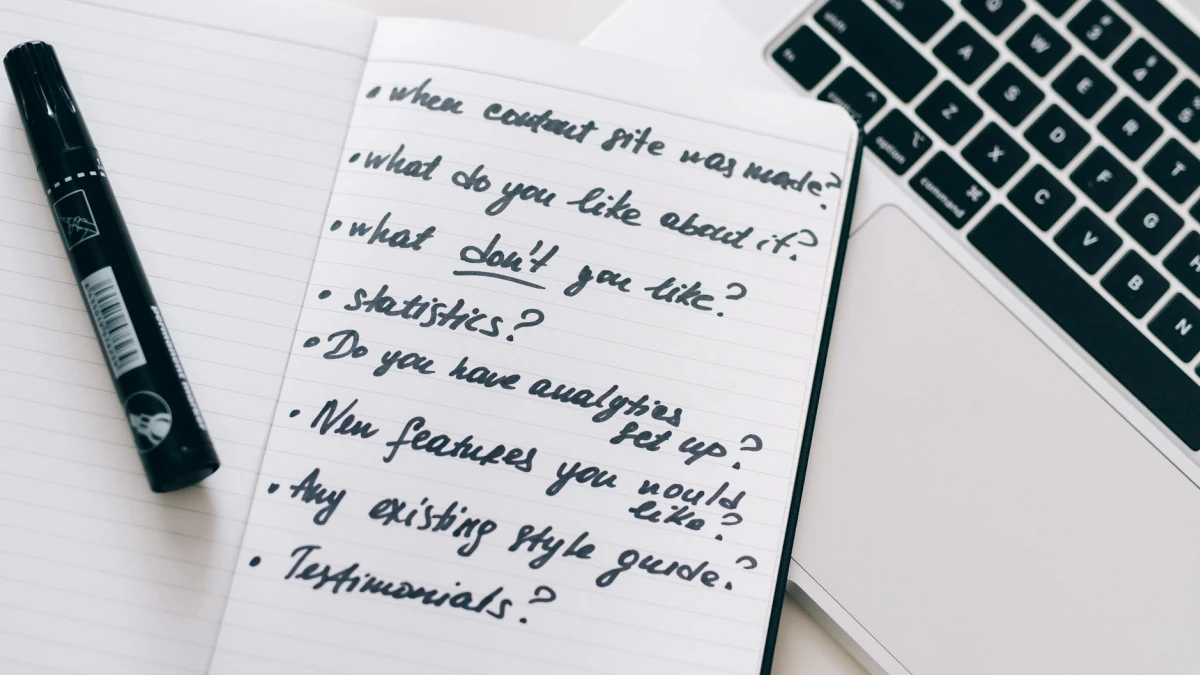 • when content site was made?
• what do you like about it?
• what don't you like?
• statistics?
• Do you have analytics
set up?
• New features you would
like?
• Any existing style guide?
• Testimonials?
fn
shift
Q
W
3
4
A
S
E
R
Z
X
D
F
T
option
command ⌘
C
V
G
B
N